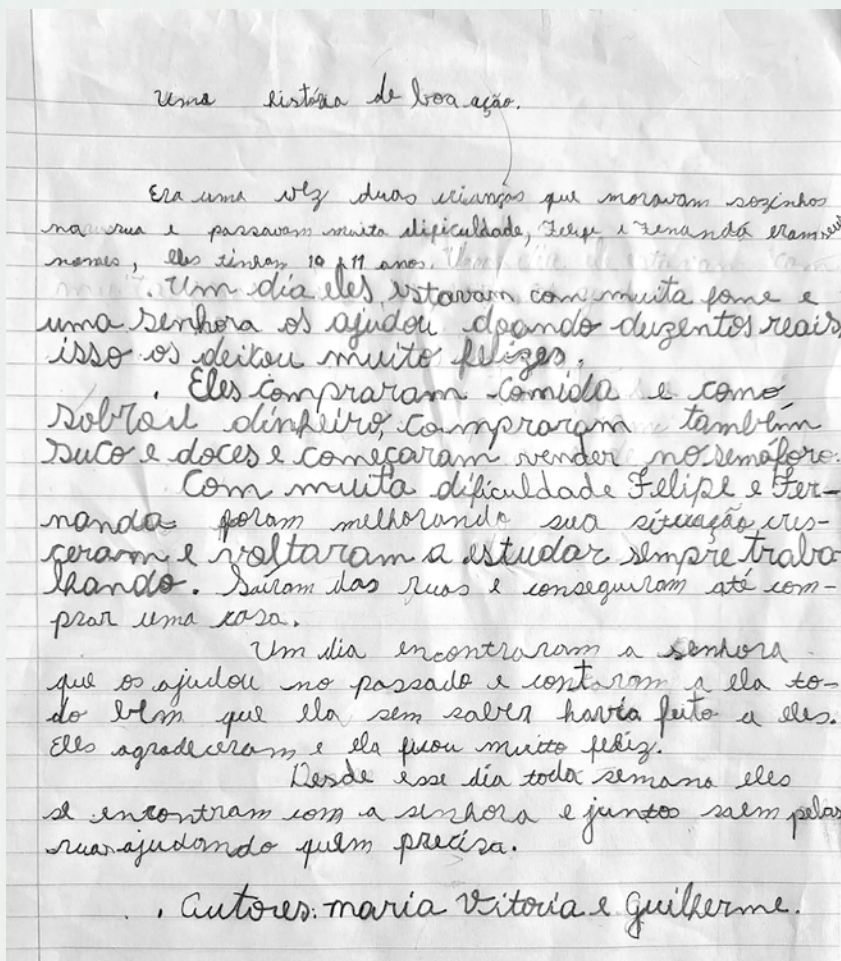 Uma história de boa ação.
Era uma vez duas crianças que moravam sozinhos
na rua e passavam muita dificuldade, Felipe e Fenanda eram seus
nomes, eles tinham 10 e 11 anos.
. Um dia eles estavam com muita fome e
uma senhora os ajudou doando duzentos reais,
isso os deixou muito felizes.
. Eles compraram comida e como
sobrou dinheiro, compraram também
suco e doces e começaram vender no semáforo.
Com muita dificuldade Felipe e Fer-
nanda foram melhorando sua situação, cres-
ceram e voltaram a estudar sempre traba
lhando. Saíram das ruas e conseguiram até com-
prar uma casa.
Um dia encontraram a senhora
que os ajudou no passado e contaram a ela to-
do bem que ela sem saber havia feito a eles.
Eles agradeceram e ela ficou muito feliz.
Desde esse dia toda semana eles
se encontram com a senhora e juntos saem pelas
ruas ajudando quem precisa.
. Autores: maria Vitoria e Guilherme.